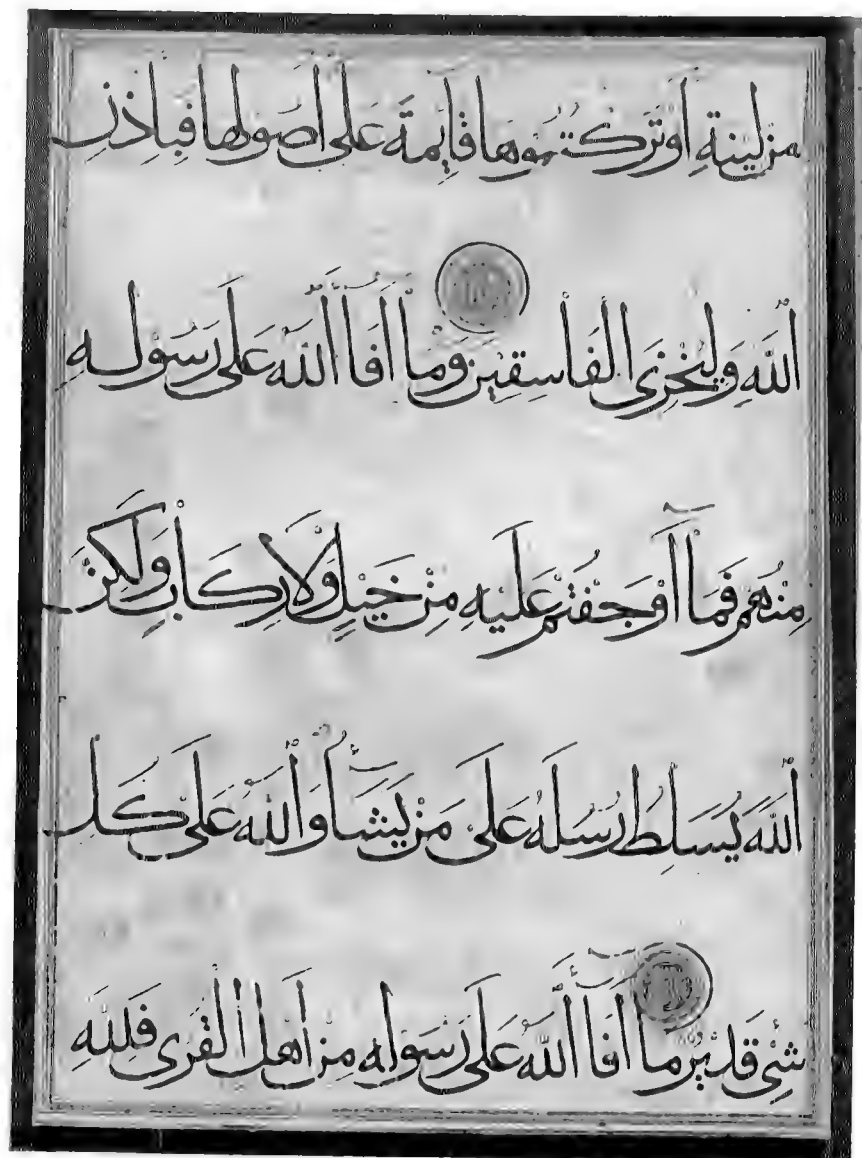 مِن لِينَةٍ أَوْ تَرَكْتُمُوهَا قَايِمَةً عَلَى أُصُولِهَا فَبِإِذْنِ
اللَّهِ وَلِيُخْزِيَ الْفَاسِقِينَ وَمَا أَفَا اللَّهُ عَلَى رَسُولِهِ
مِنْهُمْ فَمَا أَوْجَفْتُمْ عَلَيْهِ مِنْ خَيْلٍ وَلَا رِكَابٍ وَلَكِنَّ
اللَّهَ يُسَلِّطُ رُسُلَهُ عَلَى مَنْ يَشَآءُ وَاللَّهُ عَلَى كُلِّ
شَيْءٍ قَدِيرٌ مَا أَفَا اللَّهُ عَلَى رَسُولِهِ مِنْ أَهْلِ الْقُرَى فَلِلَّهِ